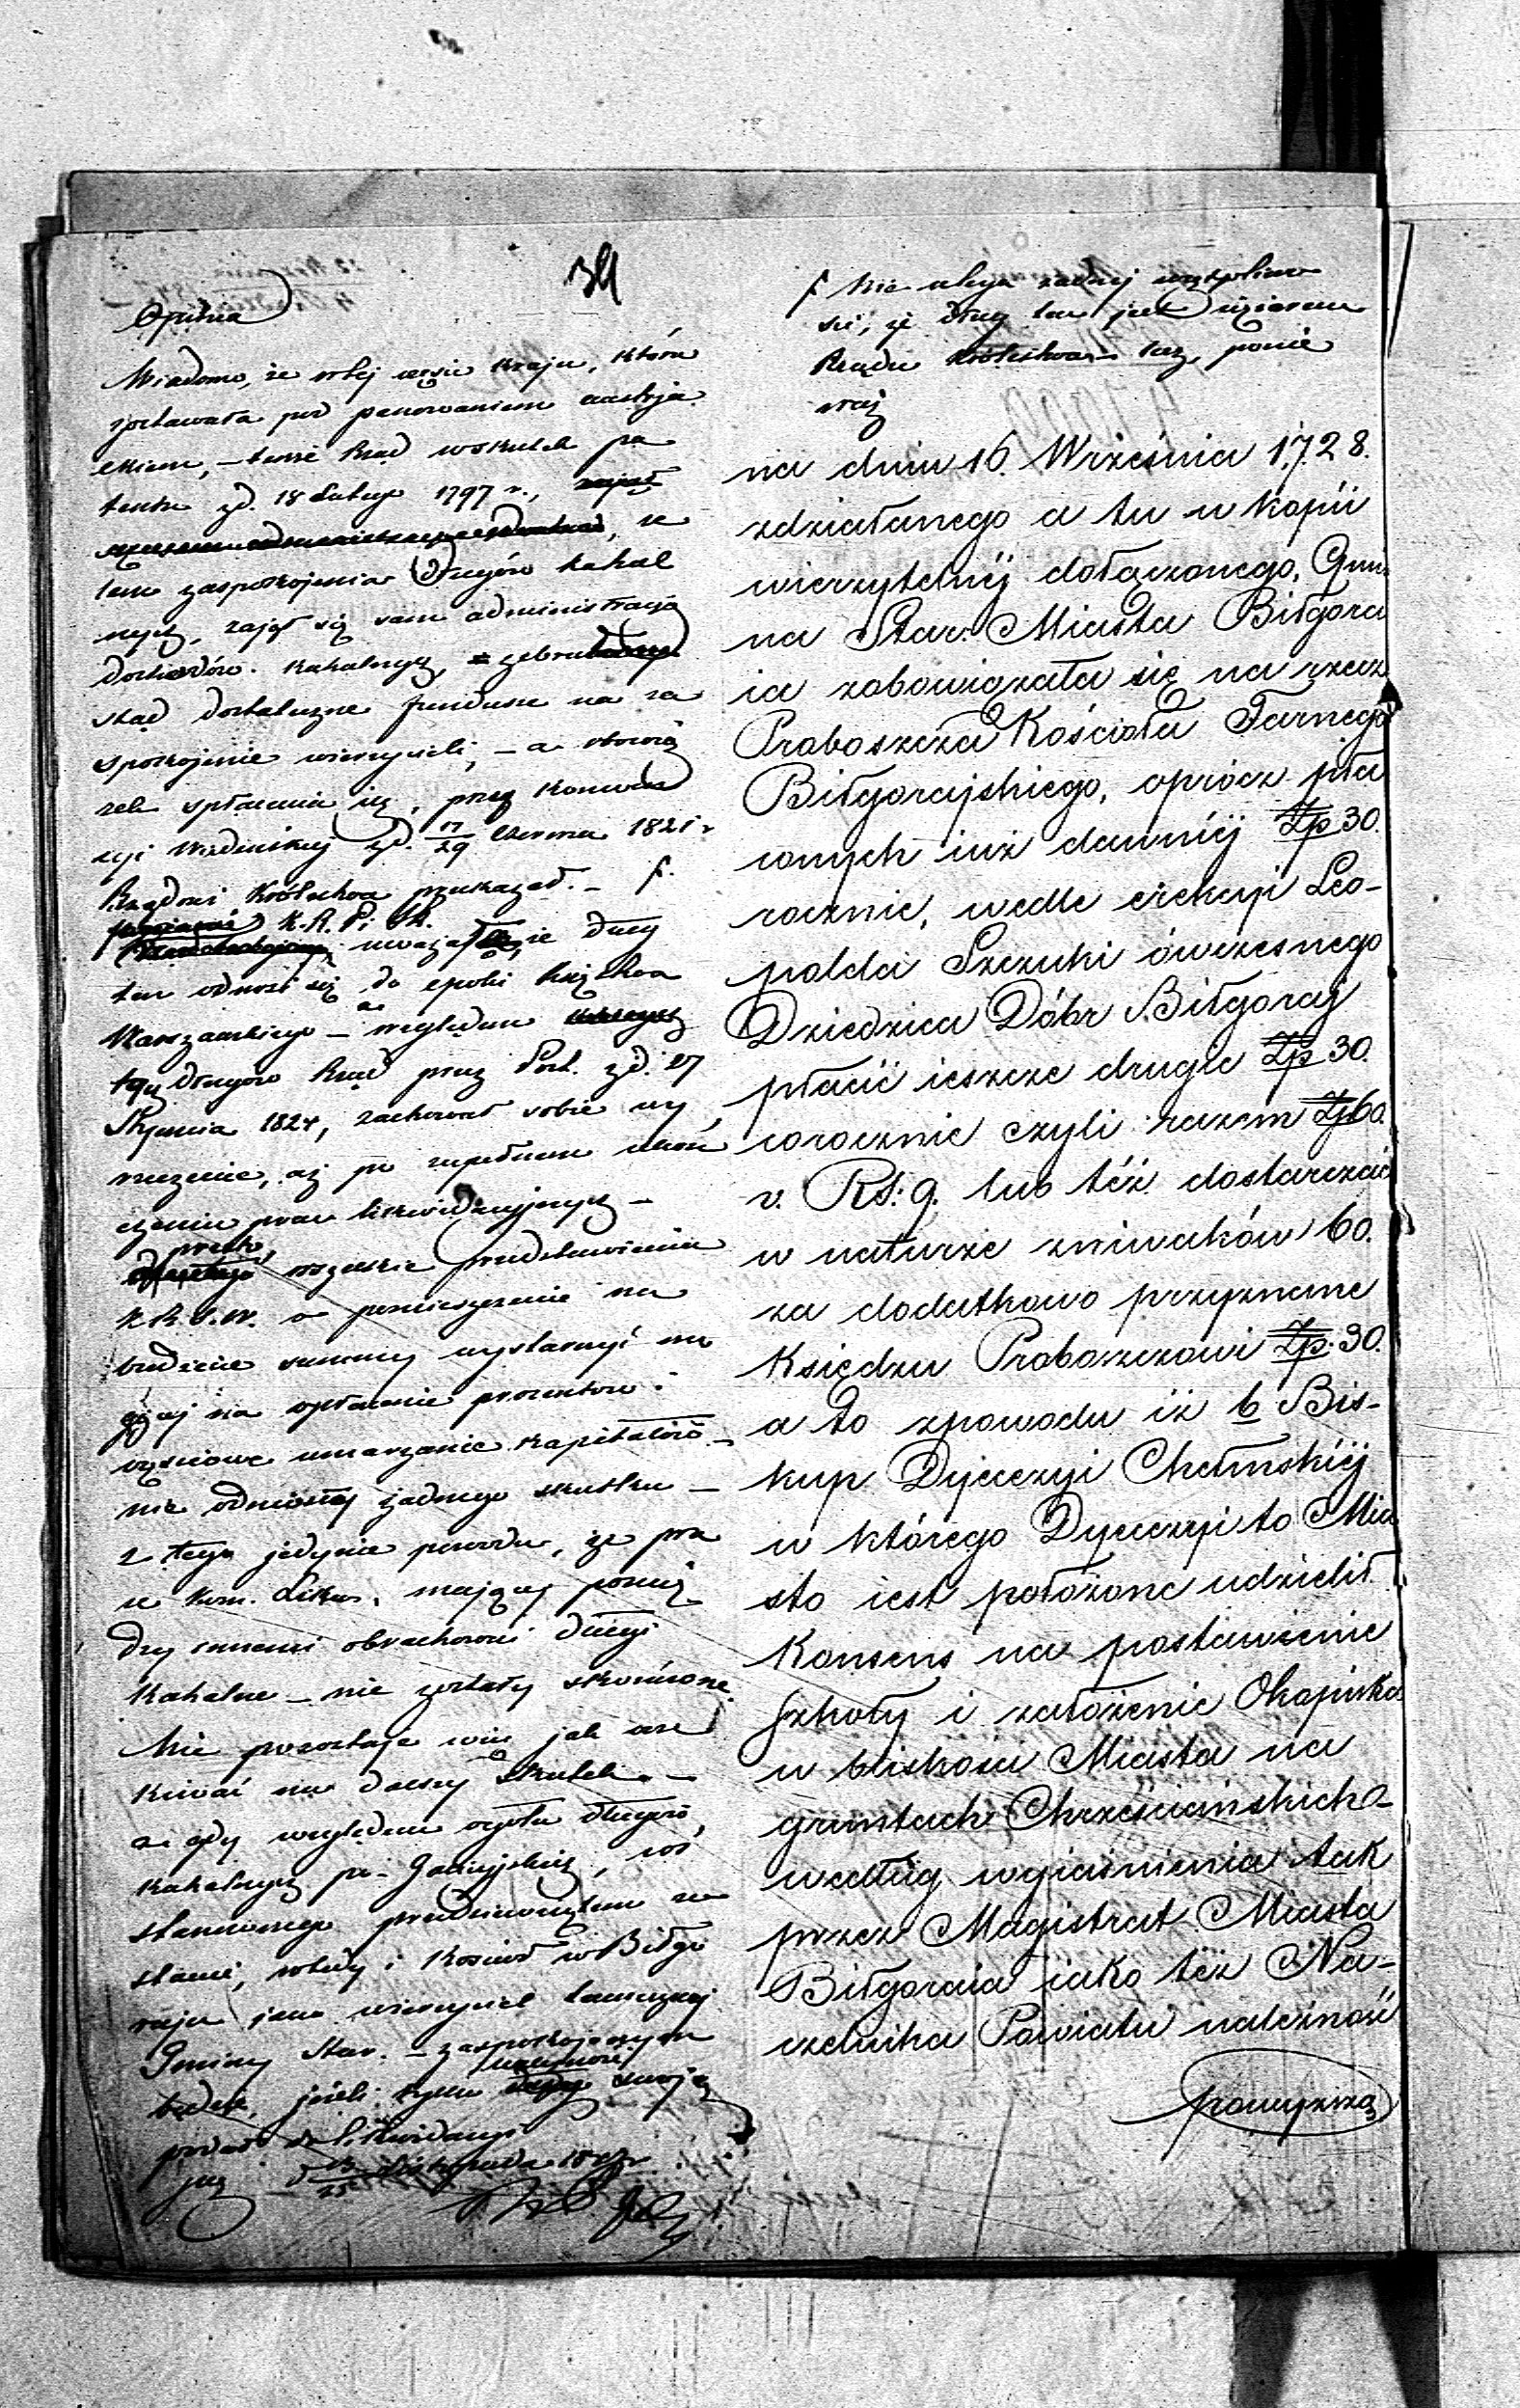 34
Opinia
Wiadomo, że w tej części kraju, która
zostawała pod panowaniem austryja
ckiem, – tenże Rząd wskutek pa
tentu z d. 18 Lutego 1797 r.,
tem zaspokojenia długów kahal
nych, zajął się sam administracją
dochodów kahalnych,
stąd dostateczne fundusze na za
spokojenie wierzycieli, – a obowią
zek spłacenia ich, przez konwen
cyi Wiedeńskiej z d. 17/29 czerwca 1821 r
Rządowi Królestwa przekazał. – f.
K. R. P. i S. uważając, że długi
ten odnosi się do epoki Księstwa
Warszawskiego – a względem
tych długów Rząd przez Post. z d. 27
Stycznia 1824, zachował sobie wy
rzeczenie, aż po zupełnem ukoń
czeniu prac likwidacyjnych –
przeto wszelkie przedstawienia
K.R.S.W. o pomieszczenie na
budżecie summy wystarczyć mo
gącej na opłacanie procentów i
częściowe umarzanie kapitałów –
nie odniosły żadnego skutku –
z tego jedynie powodu, że pra
ce Kom. Likw. mającej pomię
dzy innemi obrachować długi
kahalne – nie zostały skończone.
Nie pozostaje więc jak ocze
kiwać na dalszy skutek –
a gdy względem ogółu długów,
kahalnych po-Galicyjskich, coś
stanowczego przedsięwziętem zo
stanie, wtedy i Kościół w Biłgo
raju jako wierzyciel tamecznej
Gminy Star. – zaspokojonym
będzie, jeżeli tylko należność swoją
podał do likwidacyi
d 13/25 Listopada
f Nie ulega żadnej wątpliwo
ści, że dług ten jest ciężarem
Rządu Królestwa
na dniu 16. Września 1728.
zdziałanego a tu w kopii
wierzytelnéj dołączonego, Gmi
na Star. Miasta Biłgora
ia zobowiązała się na rzecz
Proboszcza Kościoła Farnego
Biłgorajskiego, oprócz pła
conych iuż dawniéj Zp 30.
rocznie, wedle erekcyi Leo-
polda Szczuki ówczesnego
Dziedzica Dóbr Biłgoraj
płacić ieszcze drugie Zp 30.
corocznie czyli razem Zp 60.
v. RS: 9. lub téż dostarczać
w naturze żniwaków 60.
za dodatkowo przyznane
Księdzu Proboszczowi Zp. 30.
a to zpowodu iż b Bis-
kup Dyecezyi Chełmskiéj
w którego Dyecezyi to Mia
sto iest położone udzielił
Konsens na postawienie
Szkoły i założenie Okopiska
w bliskości Miasta na
gruntach Chrześciańskich –
według wyiaśnienia tak
przez Magistrat Miasta
Biłgoraia iako téż Na-
czelnika Powiatu należność
powyższa